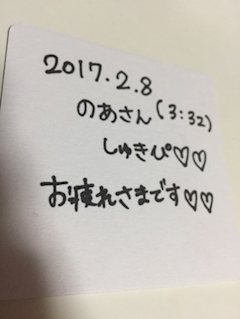 2017.2.8
のあさん(3:32)
しゅきぴ♡♡
お疲れさまです♡♡